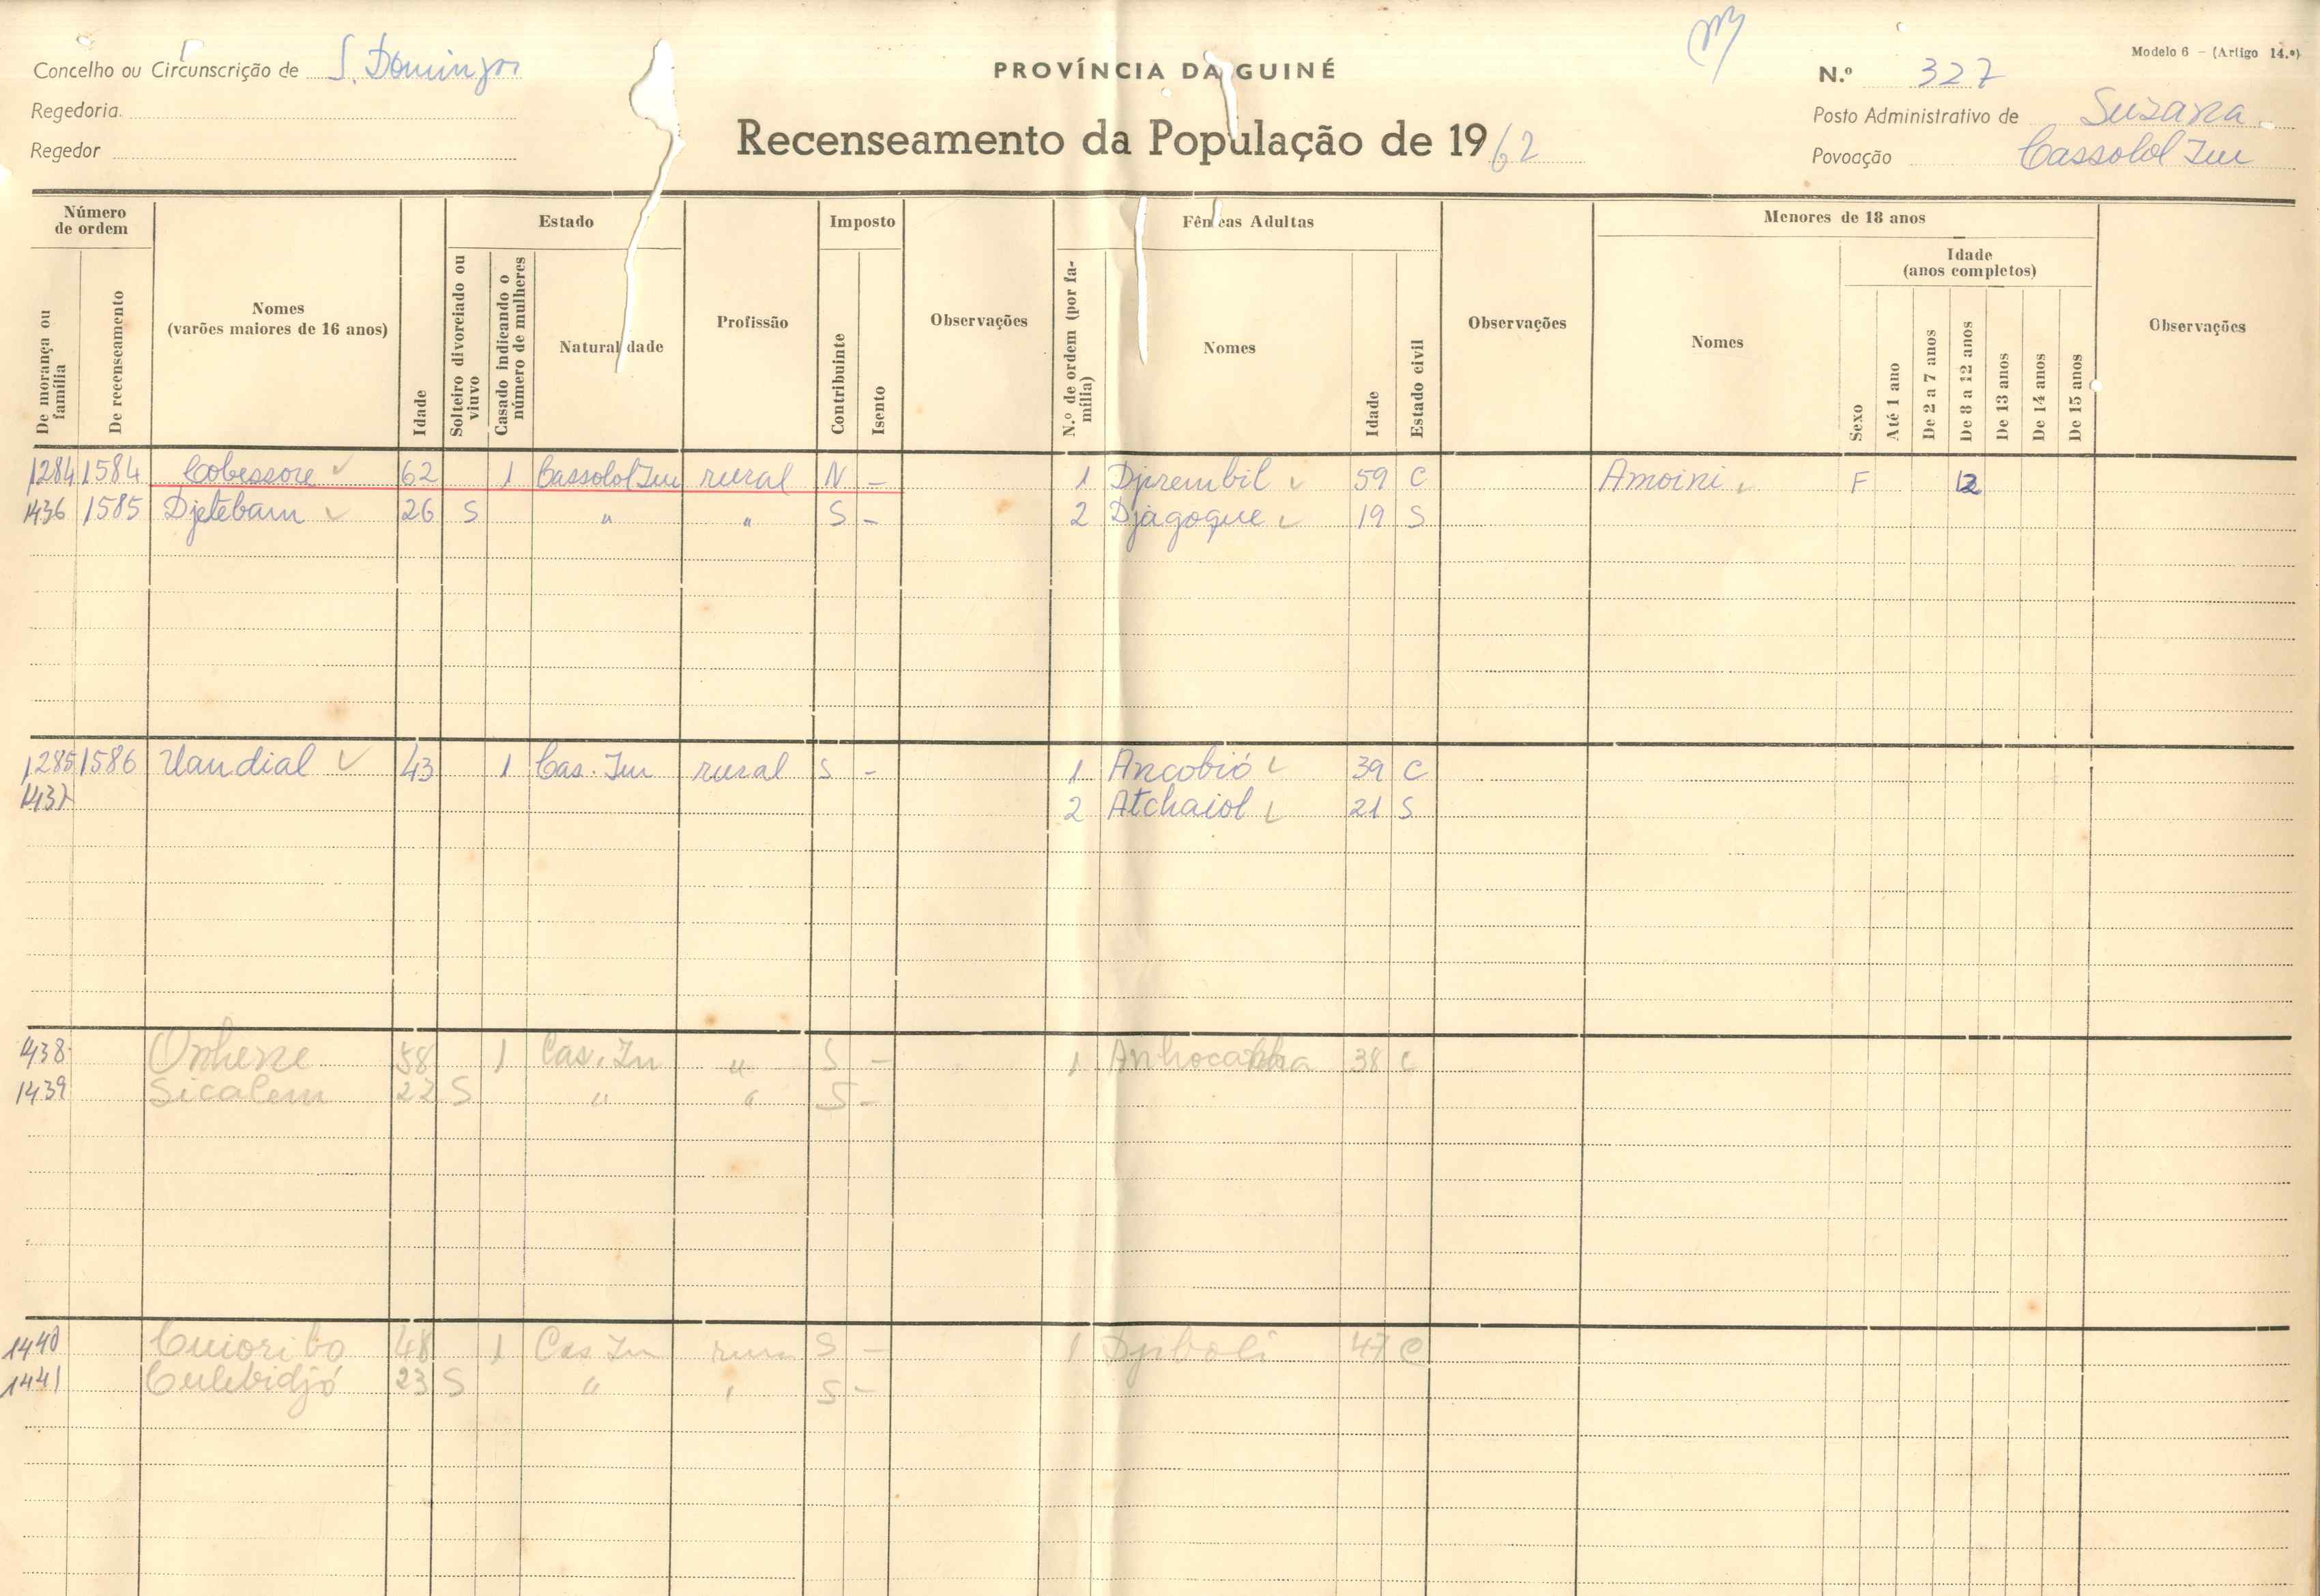 Modelo 6 – (Artigo 14.º)
Concelho ou Circunscrição de S. Domingos
PROVÍNCIA DA GUINÉ
N.º 327
Regedoria
Recenseamento da População de 1962
Posto Administrativo de Suzana
Regedor
Povoação Cassolol Iu
Número de ordem
Estado
Imposto
Fêmeas Adultas
Menores de 18 anos
De morança ou família
De recenseamento
Nomes (varões maiores de 16 anos)
Idade
Solteiro divorciado ou viuvo
Casado indicando o número de mulheres
Naturalidade
Profissão
Contribuinte
Isento
Observações
N.º de ordem (por família)
Nomes
Idade
Estado civil
Observações
Nomes
Sexo
Idade (anos completos)
Até 1 ano
De 2 a 7 anos
De 8 a 12 anos
De 13 anos
De 14 anos
De 15 anos
Observações
1284 1584 Cobessore 62 1 Cassolol Iu rural N – 1 Djirembil 59 C Amoini F 12
1436 1585 Djetebam 26 S " " S – 2 Djagoque 19 S
1285 1586 Uandial 43 1 Cas. Iu rural S – 1 Ancobió 39 C
1437 2 Atchaiol 21 S
1438 Onhene 58 1 Cas. Iu " S – 1 38 C
1439 Sicalem 22 S " " S –
1440 Cuioribo 48 1 Cas Iu S – 1 Djiboli 47 C
1441 Culebidjó 23 S " " S –